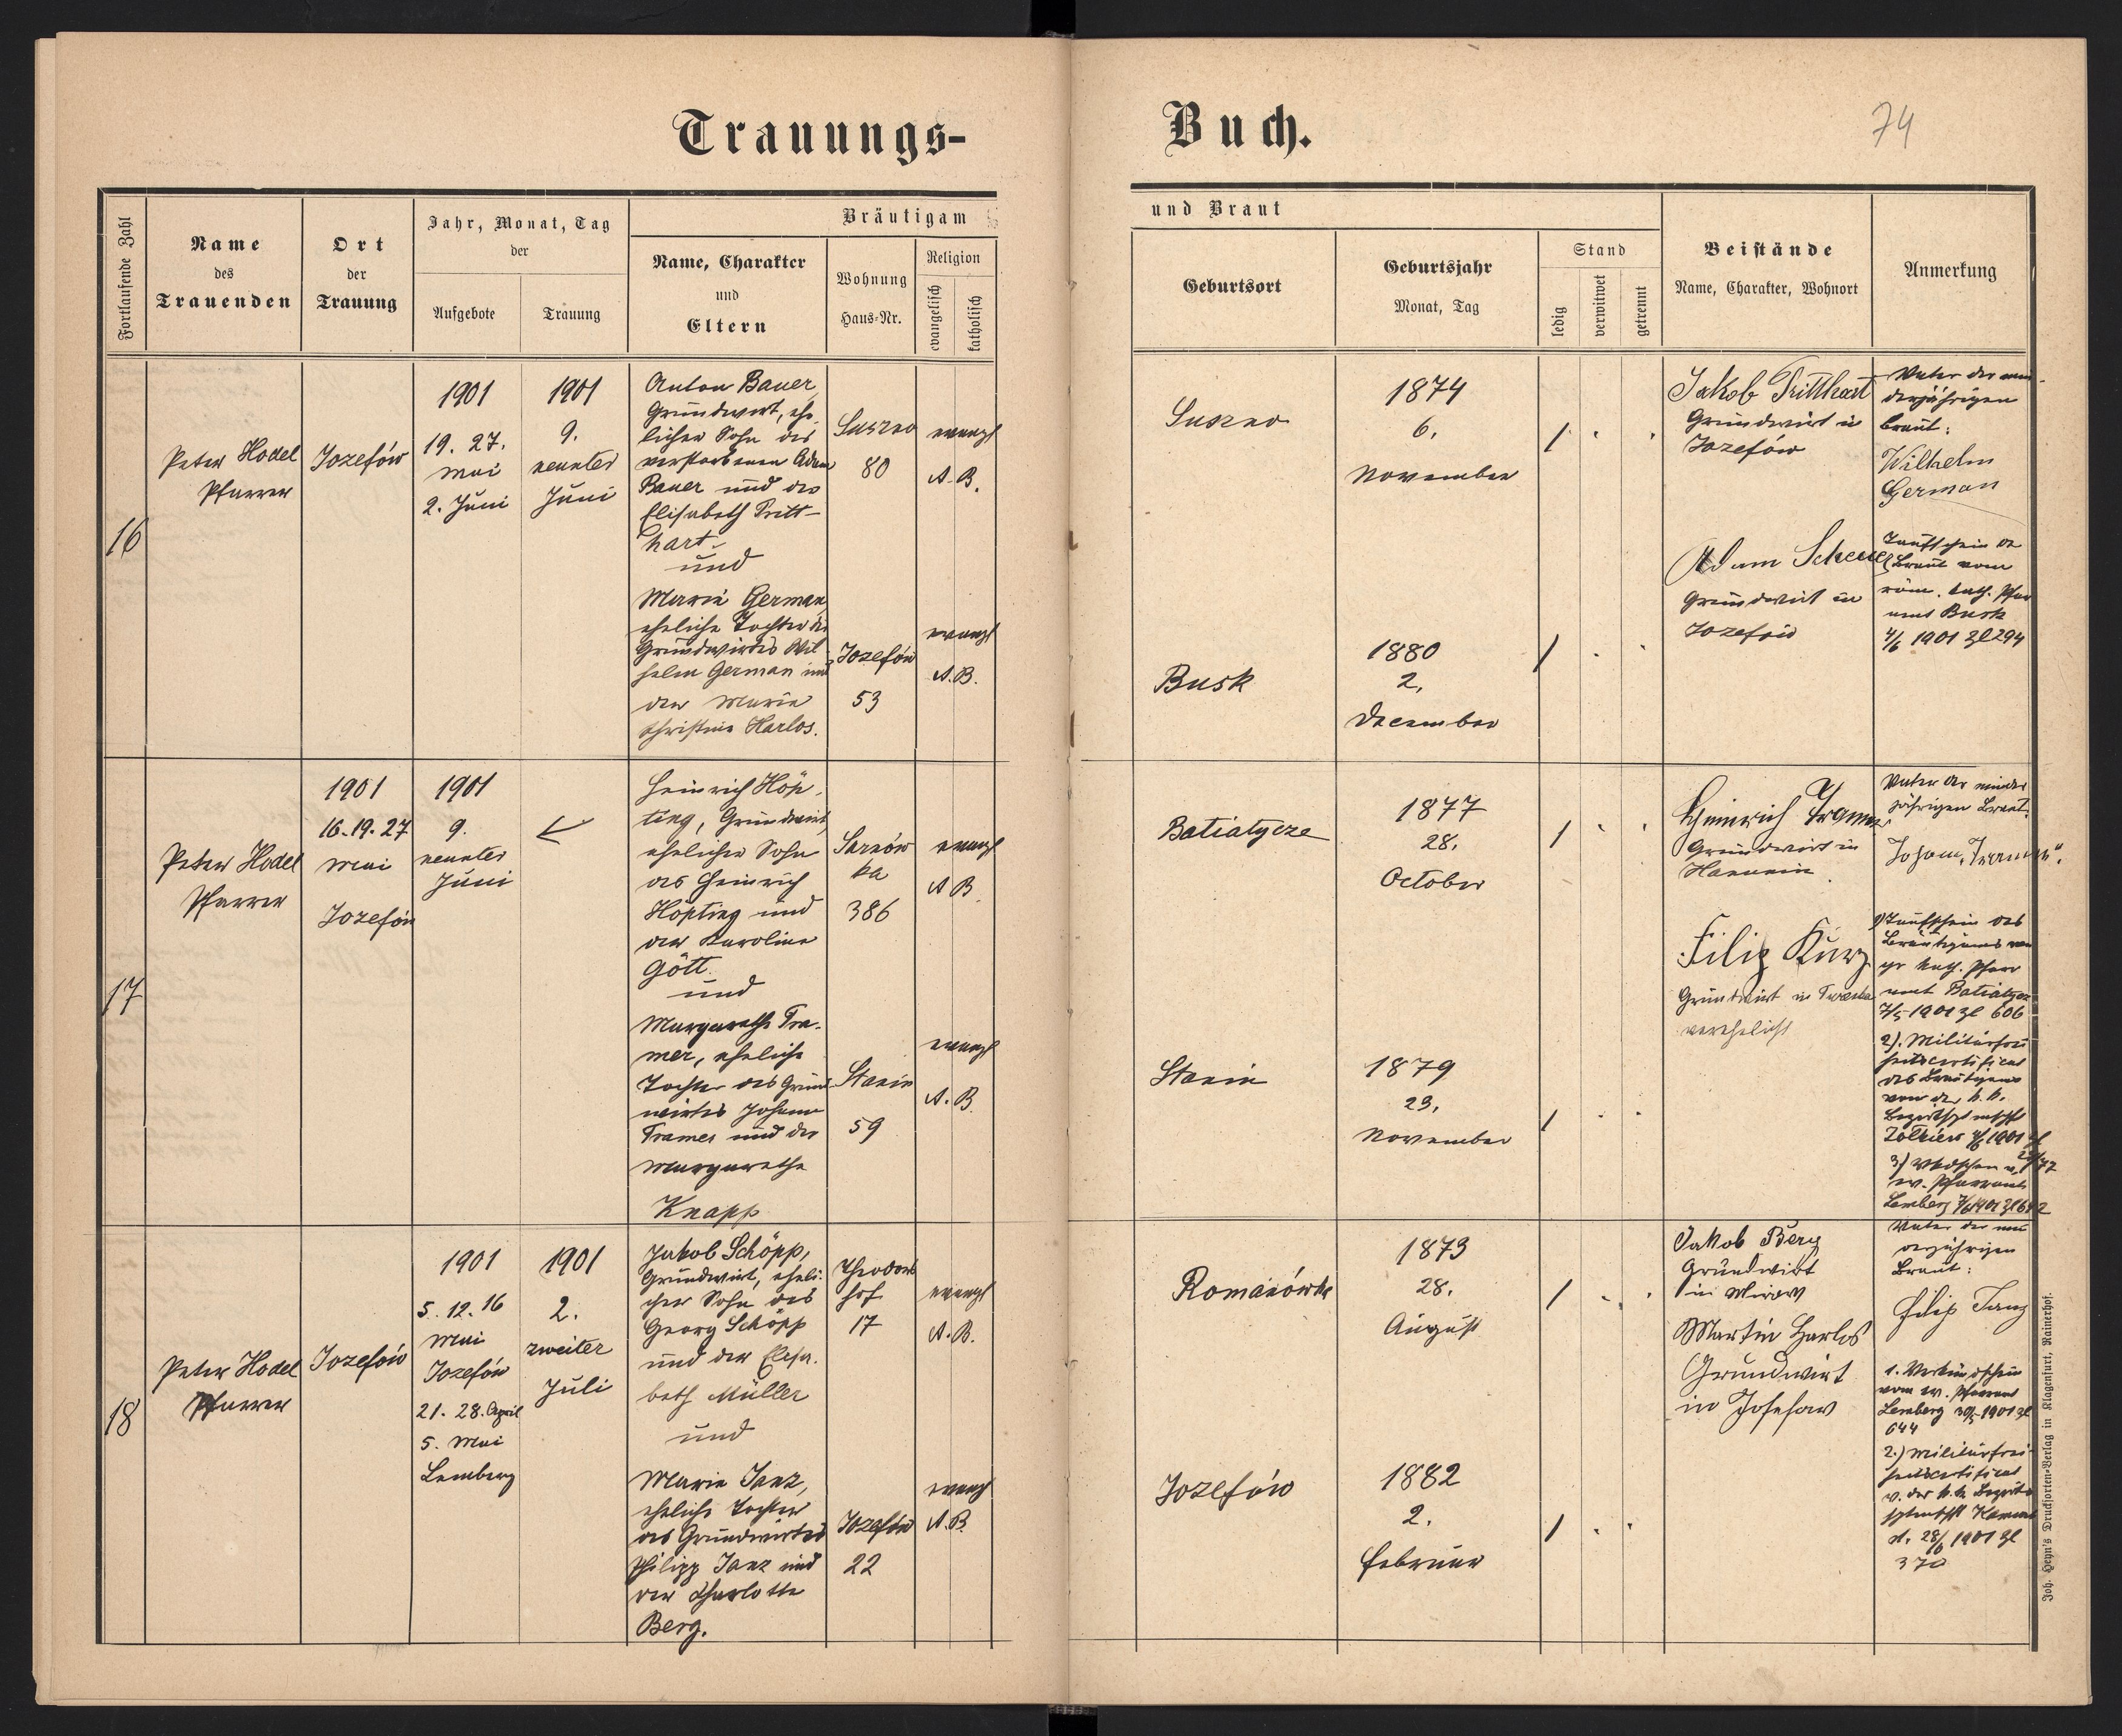 Trauungs-
Buch.
74
Fortlaufende Zahl
Name
des
Trauenden
Ort
der
Trauung
Jahr, Monat, Tag
der
Aufgebote
Trauung
Bräutigam
Name, Charakter
und
Eltern
Wohnung
Haus-Nr.
Religion
evangelisch
katholisch
und Braut
Geburtsort
Geburtsjahr
Monat, Tag
Stand
ledig
verwitwet
getrennt
Beistände
Name, Charakter, Wohnort
Anmerkung
16
Peter Hodel
Pfarrer
Jozefów
1901
19. 27.
Mai
2. Juni
1901
9.
neunter
Juni
Anton Bauer,
Grundwirt, ehe-
licher Sohn des
verstorbenen Adam
Bauer und der
Elisabeth Tritt-
hart
und
Marie German,
eheliche Tochter des
Grundwirtes Wil-
helm German und
der Marie
Christine Harlos.
Suszno
80
evangl
A. B.
Jozefów
53
evangl
A. B.
Suszno
1874
6.
November
1
Busk
1880
2.
December
1
Jakob Tritthart
Grundwirt in
Jozefów
Adam Scheuer
Grundwirt in
Jozefów
Vater der min-
derjährigen
Braut:
Wilhelm
German
Taufschein der
Braut vom
röm. kath. Pfar
amt Busk
4/6 1901 Zl 294
17
Peter Hodel
Pfarrer
1901
16. 19. 27
Mai
Jozefów
1901
9.
neunter
Juni
Heinrich Höp-
ting, Grundwirt,
ehelicher Sohn
des Heinrich
Höpting und
der Karoline
Gött.
und
Margarethe Tra-
mer, eheliche
Tochter des Grund-
wirtes Johann
Tramer und der
Margarethe
Knapp
386
evangl
A. B.
Stanin
59
evangl
A. B.
Batiatycze
1877
28.
October
1
Stanin
1879
23.
November
1
Heinrich Tramer
Grundwirt in
Hanunin
Filip Kurz
Grundwirt in
verehelicht
Vater der minder
jährigen Braut.
Johann Tramer.
1) Taufschein des
Bräutigams vom
gr kath. Pfarr
amt Batiatycze
7/5 1901 Zl 606
2). Militärfrei
heitscertificat
des Bräutigams
von der k. k.
Bezirkshptmschft
Zółkiew 4/6 1901 Zl
3) v.
ev. Pfarramt
Lemberg
18
Peter Hodel
Pfarrer
Jozefów
1901
5. 12. 16
Mai
Jozefów
21. 28. April
5. Mai
Lemberg
1901
2.
zweiter
Juli
Jakob Schöpp,
Grundwirt, eheli-
cher Sohn des
Georg Schöpp
und der Elisa-
beth Müller
und
Marie Janz,
eheliche Tochter
des Grundwirtes
Philipp Janz und
der Charlotte
Berg.
Theodors
hof
17
evangl
A. B.
Jozefów
22
evangl
A. B.
Romanówka
1873
28.
August
1
Jozefów
1882
2.
Februar
1
Jakob Berg
Grundwirt
in
Martin Harlos
Grundwirt
in Josefow
Vater der min
derjährigen
Braut:
Filip Janz
1. Verkündschein
vom ev. Pfarramt
Lemberg 30/5 1901 Zl
644
2.) Militärfrei-
heitscertificat
v. der k. k. Bezirks
hptmschft Kamionka
d. 28/6 1901 Zl
370
Joh. Heyn's Drucksorten-Verlag in Klagenfurt, Rainerhof.